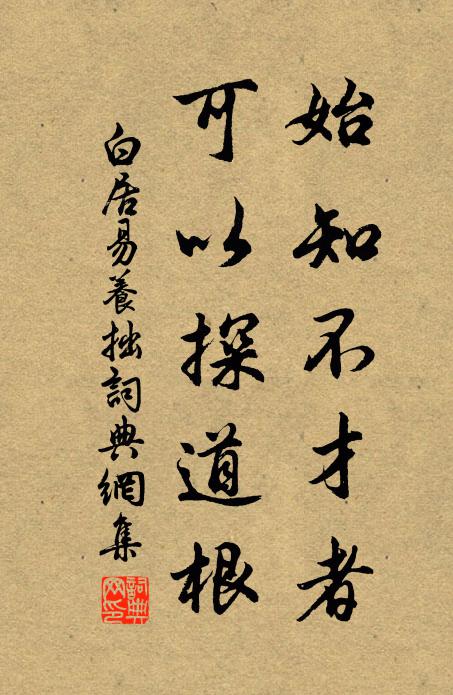 始知不才者
可以探道根
白居易養拙詞典網集
詞典網印